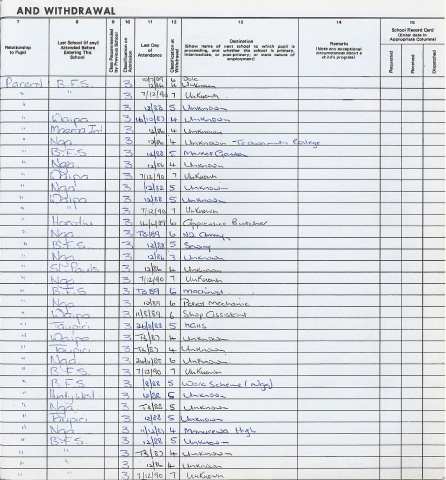 AND WITHDRAWAL
7 8 9 10 11 12 13 14 15
Relationship to Pupil
Last School (if any) Attended Before Entering This School
Last Day of Attendance
Destination
Show name of next school to which pupil is proceeding, and whether the school is primary, intermediate, or post-primary; or state nature of employment)
Remarks
(Note any exceptional circumstances about a child's progress)
School Record Card
(Enter date in Appropriate Columns)
Requested
Received
Despatched
10/7/89 Dole
Parent B.F.S. 3 12/86 4 Unknown
" " 3 7/12/90 7 Unknown
" 3 12/88 5 Unknown
" Waipa 3 16/10/87 4 Unknown
" 3 12/86 4 Unknown
" Nga 3 12/86 4 Unknown
" B.F.S 3 12/88 5 Market Garden
" Nga. 3 12/86 4 Unknown
" Waipa 3 7/12/90 7 Unknown
" Nga 3 12/88 5 Unknown
" Waipa 3 12/88 5 Unknown
" " 3 7/12/90 7 Unknown
" 3 6 Apprentice Butcher
" Nga 3 T3/89 6 NZ Army
" B.F.S. 3 12/88 5
" Nga 3 12/86 3 Unknown
" St Pauls 3 12/86 4 Unknown
" Nga 3 7/12/90 7 Unknown
" B.F.S 3 T3 89 6 Machinist
" Nga 3 12/89 6 Petrol Mechanic
" Waipa 3 11/8/89 6 Shop Assistant
" Taupiri 3 26/8/88 5
" Waipa 3 T3/87 4 Unknown
" Taupiri 3 T3/87 4 Unknown
" Nga 3 6 Unknown
" B.F.S. 3 7/12/90 7 Unknown
" B.F.S. 3 /8/88 5 Work Scheme (Nga)
" Huntly West 3 12/88 5 Unknown
" Nga 3 T3/88 5 Unknown
" Taupiri 3 12/88 5 Unknown
" Nga 3 11/12/87 4 Manurewa High
" B.F.S. 3 12/88 5 Unknown
" " 3 T3/87 4 Unknown
" " 3 12/86 4 Unknown
" " 3 7/12/90 7 Unknown